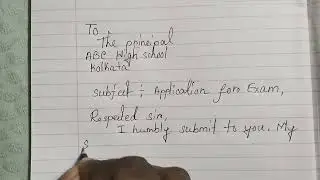 To
The principal
ABC High school
Kolkata
Subject : Application for Exam,
Respeted sir,
I humbly submit to you. My
s